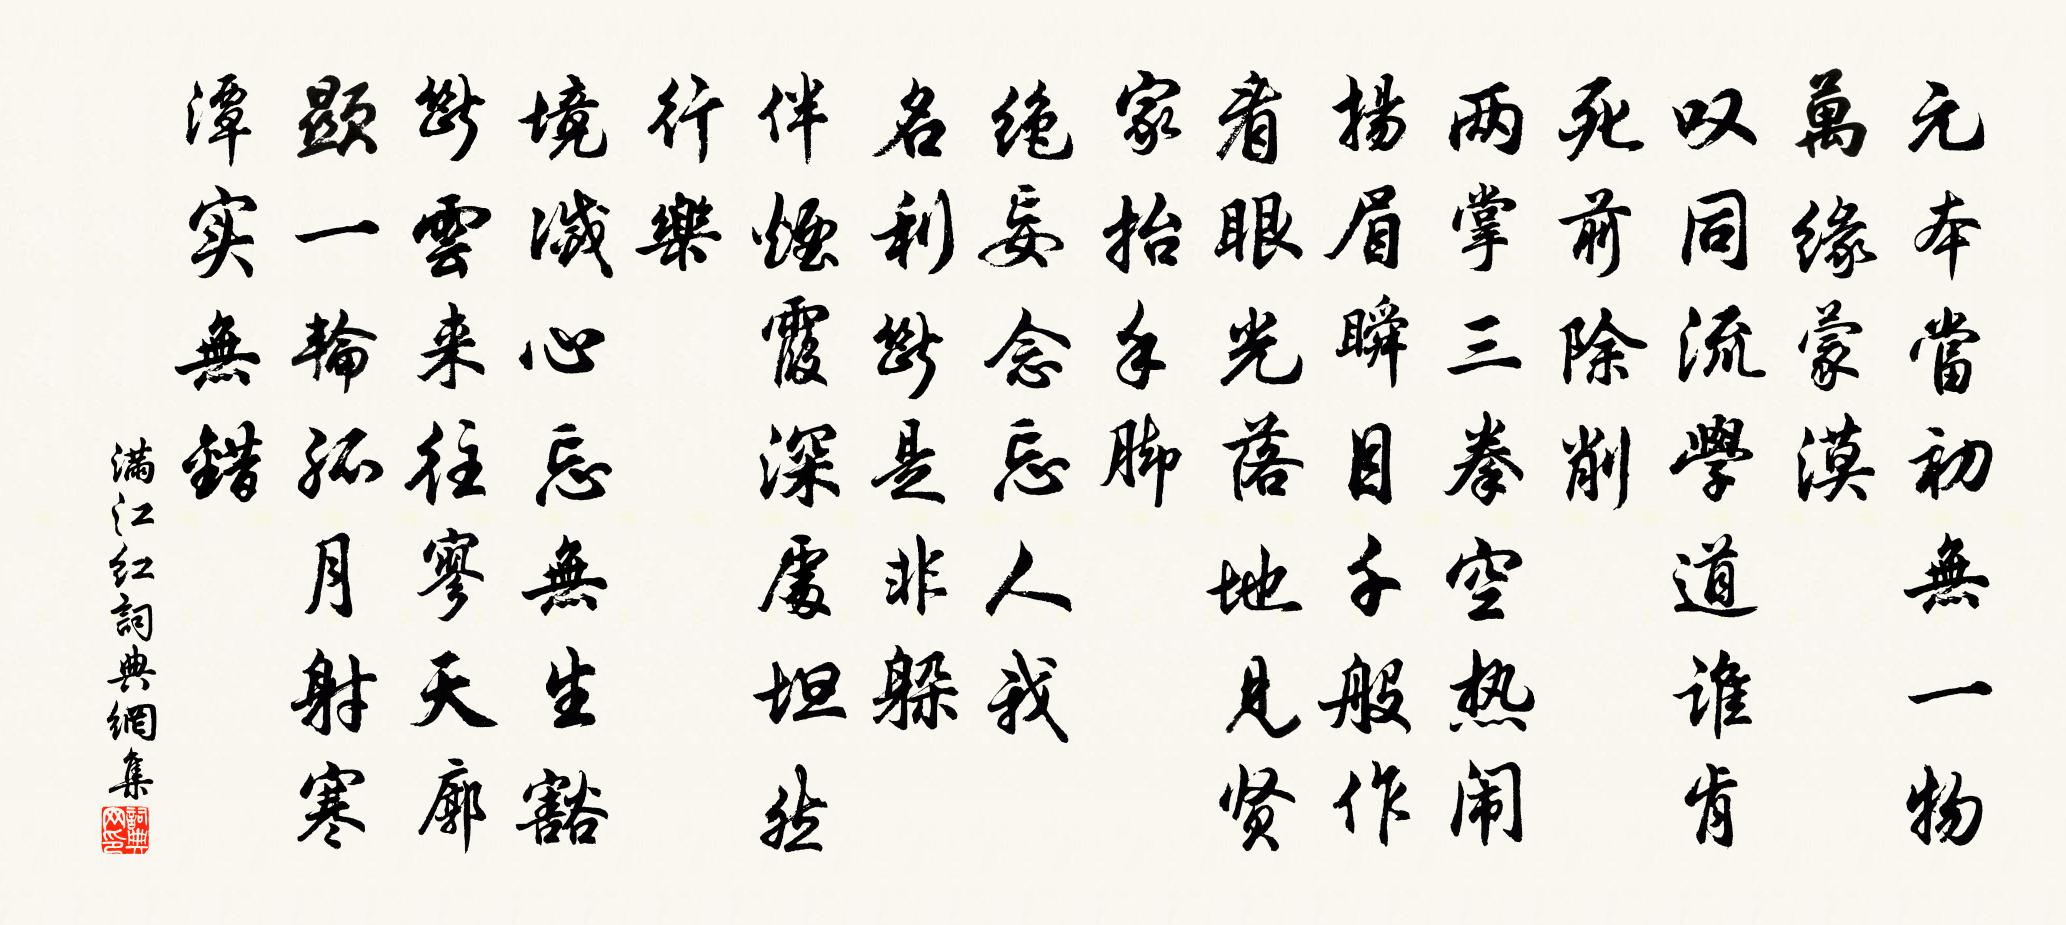 元本當初無一物
萬緣蒙漠
叹同流學道谁肯
死前除削
两掌三拳空热闹
揚眉瞬目千般作
看眼光落地見贤
家抬手脚
绝妄念忘人我
名利斷是非躲
伴煙霞深處坦然
行樂
境滅心忘無生豁
斷雲来往寥天廓
顯一輪孤月射寒
潭实無錯
满江红詞典網集
詞典网印